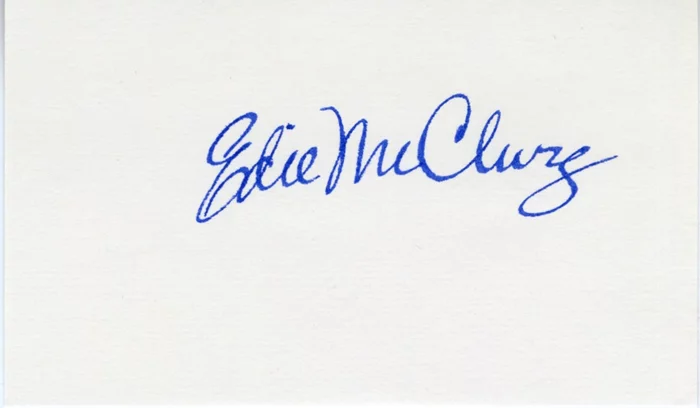 Edie McClurg